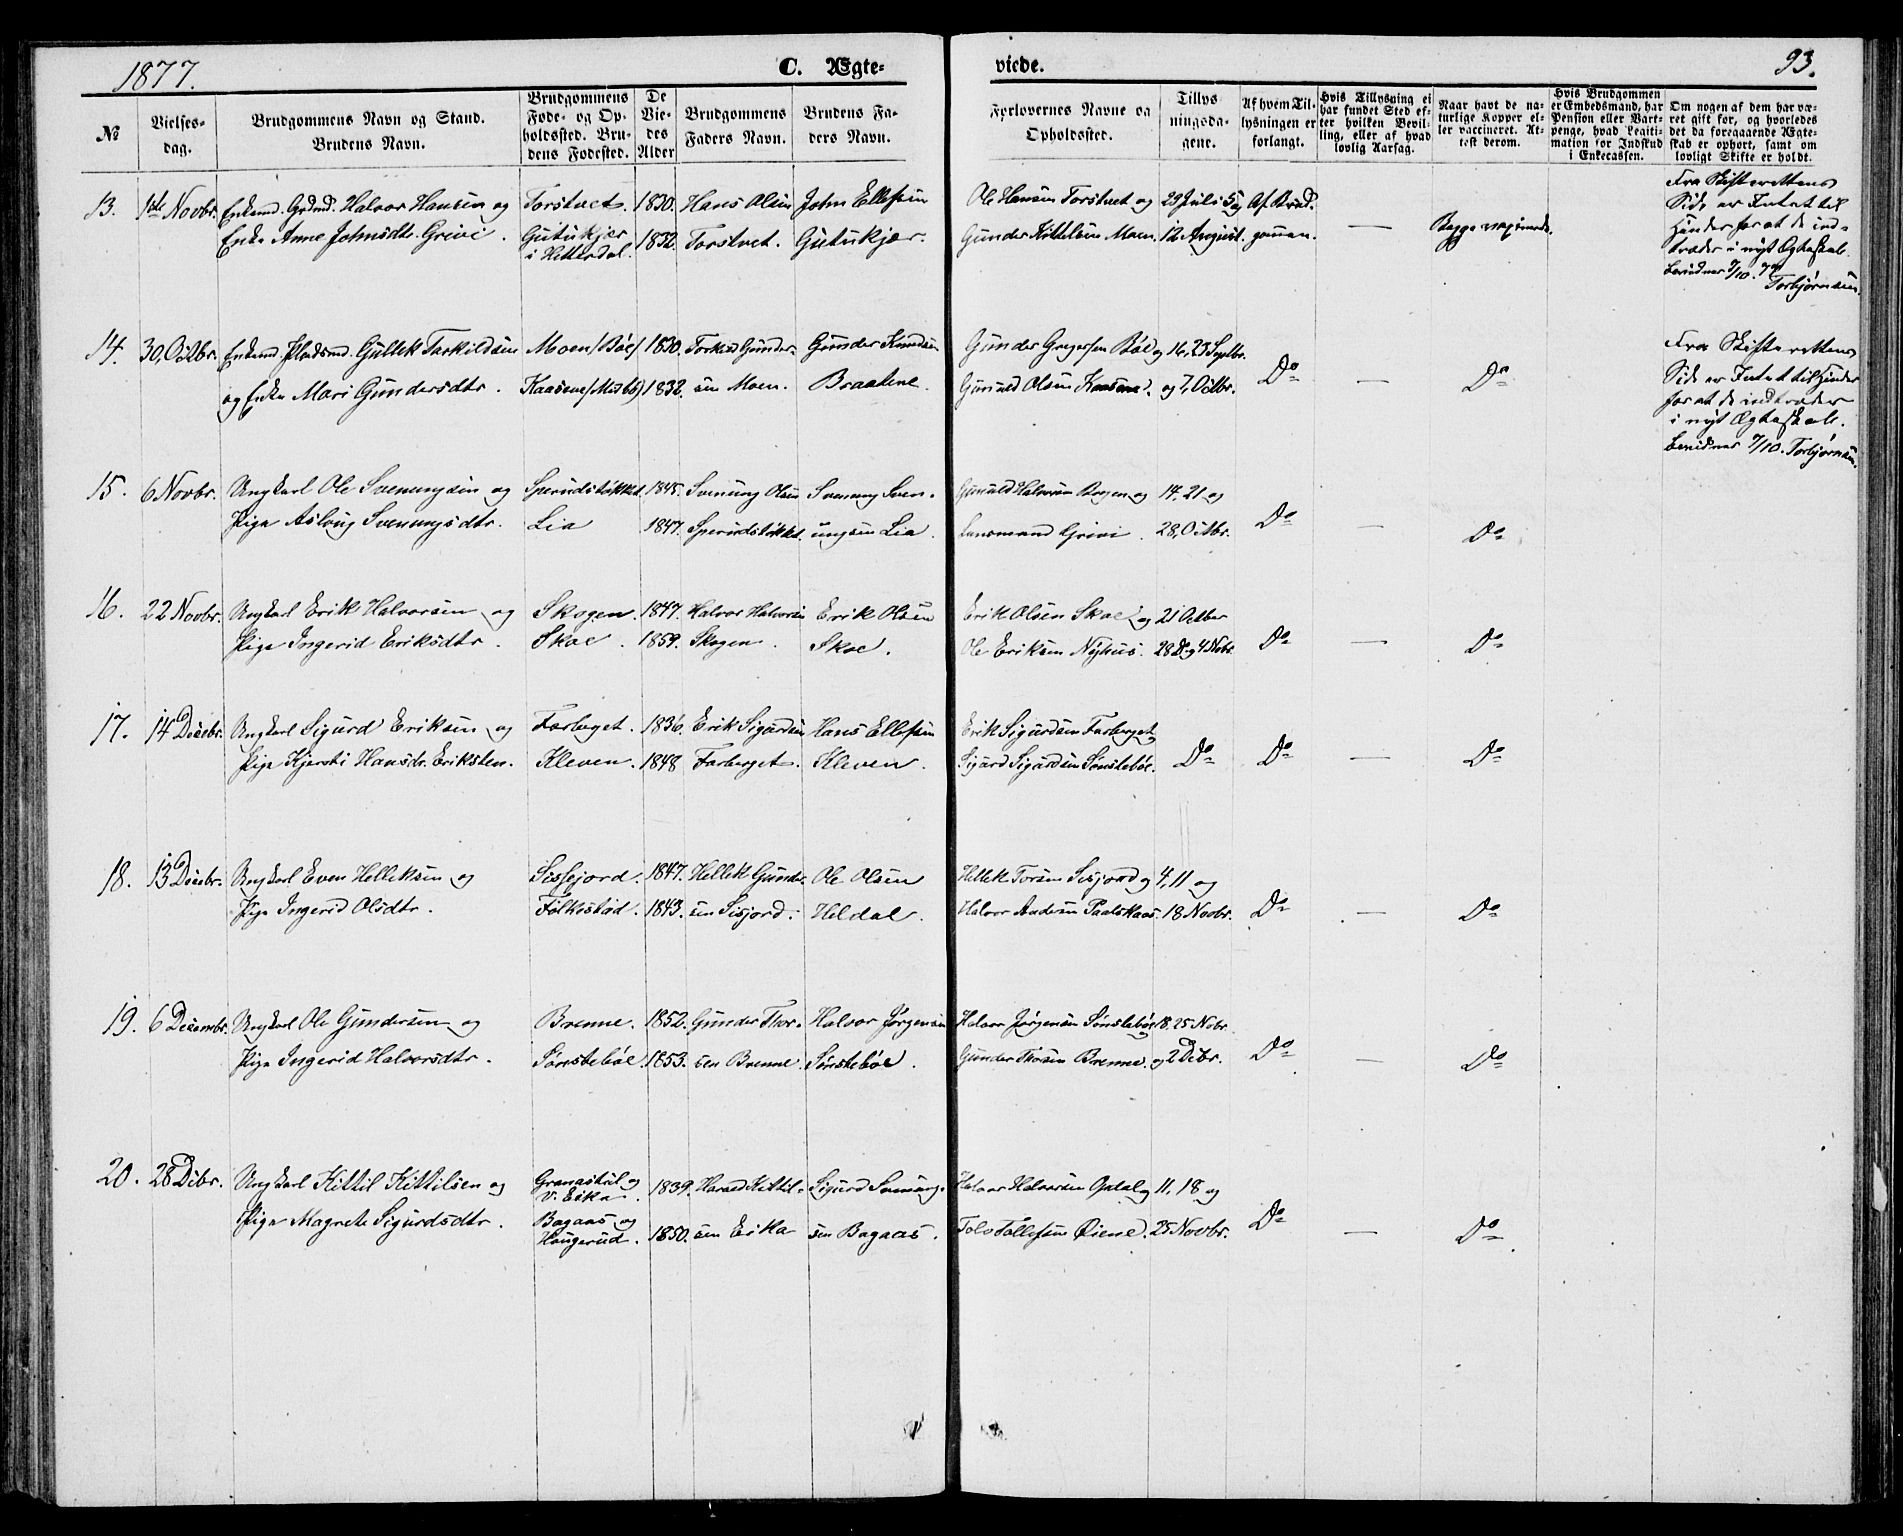 1877.
C. Ægte-
viede.
93.
№
Vielses-
dag.
Brudgommens Navn og Stand.
Brudens Navn.
Brudgommens
Føde- og Op-
holdssted. Bru-
dens Fødested.
De
Vie-
des
Alder
Brudgommens
Faders Navn.
Brudens Fa-
ders Navn.
Forlovernes Navne og
Opholdssted.
Tillys
ningsda-
gene.
Af hvem Til-
lysningen er
forlangt.
Hvis Tillysning ei
har fundet Sted ef-
ter hvilken Bevil-
ling, eller af hvad
lovlig Aarsag.
Naar havt de na-
turlige Kopper el-
ler vaccineret. At-
test derom.
Hvis Brudgommen
er Embedsmand, har
Pension eller Vart-
penge, hvad Legiti-
mation for Indskud
i Enkecassen.
Om nogen af dem har væ-
ret gift før, og hvorledes
det da foregaaende Ægte-
skab er ophørt, samt om
lovligt Skifte er holdt.
13. 1ste Novbr. Enkemd. Grdmd. Halvor Hansen og
Enke Anne Johnsdtr. Grivi.
Torstvet.
Gutukjær
i Hitterdal.
1830.
1832.
Hans Olsen
Torstvet.
John Ellefsen
Gutukjær.
Ole Hansen Torstvet og
Gunder Kittelsen Moen.
29 Juli 5 og
12 August.
Af Brud-
gommen.
—
Begge vaxinerede.
Fra Skifterettens
Side er Intet til
Hinder for at de ind-
træder i nyt Ægteskab.
Torbjørnsen.
14. 30, Octbr. Enkemd. Pladsmd. Gullek Torkildsen
og Enke Mari Gundersdtr.
Moen /Bøe/
Kaasene/
1830.
1832.
Torkild Gunder-
sen Moen.
Gunder Knudsen
Braatene.
Gunder Gregersen Bøe og
Gunuld Olsen Kaasene.
16, 23 Septbr.
og 7, Octbr.
Do
—
Do
Fra Skifterettens
Side er Intet til Hinder
for at de indtræder
i nyt Ægteskab.
7/10. Torbjørnsen.
15. 6 Novbr. Ungkarl Ole Svenungsen og
Pige Aslaug Svenungsdtr.
Lia
1845.
1847.
Svenung Olsen
Svenung Sven-
ungsen Lia.
Gunuld Halvorsen Bogen og
Lensmand Grivi.
14, 21 og
28, Octbr.
Do
—
Do
16. 22 Novbr. Ungkarl Erik Halvorsen og
Pige Ingerid Eriksdtr.
Skogen.
Skoe.
1847.
1859.
Halvor Halvorsen
Skogen.
Erik Olsen
Skoe.
Erik Olsen Skoe og
Ole Eriksen Nyhus.
21 Octber
28 Do og 4 Novbr.
Do
—
Do
17. 14 Decebr. Ungkarl Sigurd Eriksen og
Pige Kjersti Hansdr. Eriksten.
Farberget.
Kleven.
1836.
1848
Erik Sigurdsen
Farberget.
Hans Ellefsen
Kleven.
Erik Sigurdsen Farberget
Sigurd Sigurdsen Sønstebøe.
Do
Do
—
Do
18. 13 Decebr. Ungkarl Even Helleksen og
Pige Ingerid Olsdtr.
Sissejord.
Folkestad.
1847.
1843.
Hellek Gunder-
sen Sisjord.
Ole Olsen
Heldal.
Hellek Torsen Sisjord og
Halvor Andersen Paalskaas.
4, 11 og
18 Novbr.
Do
—
Do
19. 6 Decembr. Ungkarl Ole Gundersen og
Pige Ingerid Halvorsdtr.
Brenne.
Sønstebøe.
1852.
1853.
Gunder Thor-
sen Brenne.
Halvor Jørgensen
Sønstebøe.
Halvor Jørgensen Sønstebøe
Gunder Thorsen Brenne.
18, 25 Nobr.
og 2 Decbr.
Do
—
Do
20. 28 Decbr. Ungkarl Kittil Kittilsen og
Pige Magrete Sigurdsdtr.
Granastul og
V. Eika.
Bagaas og
Haugerud.
1839.
1850.
Harald Kittil-
sen Erika
Sigurd Svenung-
sen Bagaas.
Halvor Halvorsen Opdal og
Tolv Tollefsen Øiene.
11, 18 og
25 Novbr.
Do
—
Do